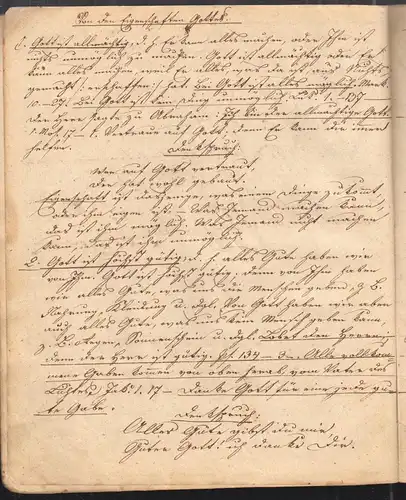 Von den Eigenschaften Gottes.
1. Gott ist allmächtig, d. h. Er kann alles machen, oder Ihm ist
nichts unmöglich zu machen. Gott ist allmächtig oder Er
kann alles machen, weil Er alles, was da ist, aus Nichts
gemacht (: erschaffen :) hat. Bei Gott ist alles möglich. Mark.
10. 27. Bei Gott ist kein Ding unmöglich. Luk. 1. 37
Der Herr sagte zu Abraham: Ich bin der allmächtige Gott.
1. Mos. 17 - 1. Vertraue auf Gott; denn Er kann dir immer
helfen.
Denkspruch:
Wer auf Gott vertraut,
Der hat wohl gebaut.
Eigenschaft ist dasjenige, was einem Dinge zukommt,
oder ihm eigen ist. Was Jemand machen kann,
das ist ihm möglich. Was Jemand nicht machen
kann, das ist ihm unmöglich.
2. Gott ist höchst gütig, d. h. alles Gute haben wir
von Ihm. Gott ist höchst gütig, denn von Ihm haben
wir alles Gute, was uns die Menschen geben, z. B.
Nahrung, Kleidung u. dgl. Von Gott haben wir aber
auch alles Gute, was uns kein Mensch geben kann,
z. B. Regen, Sonnenschein u. dgl. Lobet den Herrn,
denn der Herr ist gütig. Ps. 134 - 3. Alle vollkom
mene Gaben kommen von oben herab, vom Vater des
Lichtes. Jak. 1. 17 - Danke Gott für eine jede gu
te Gabe.
Denkspruch:
Alles Gute gibst du mir
Guter Gott! ich danke Dir.